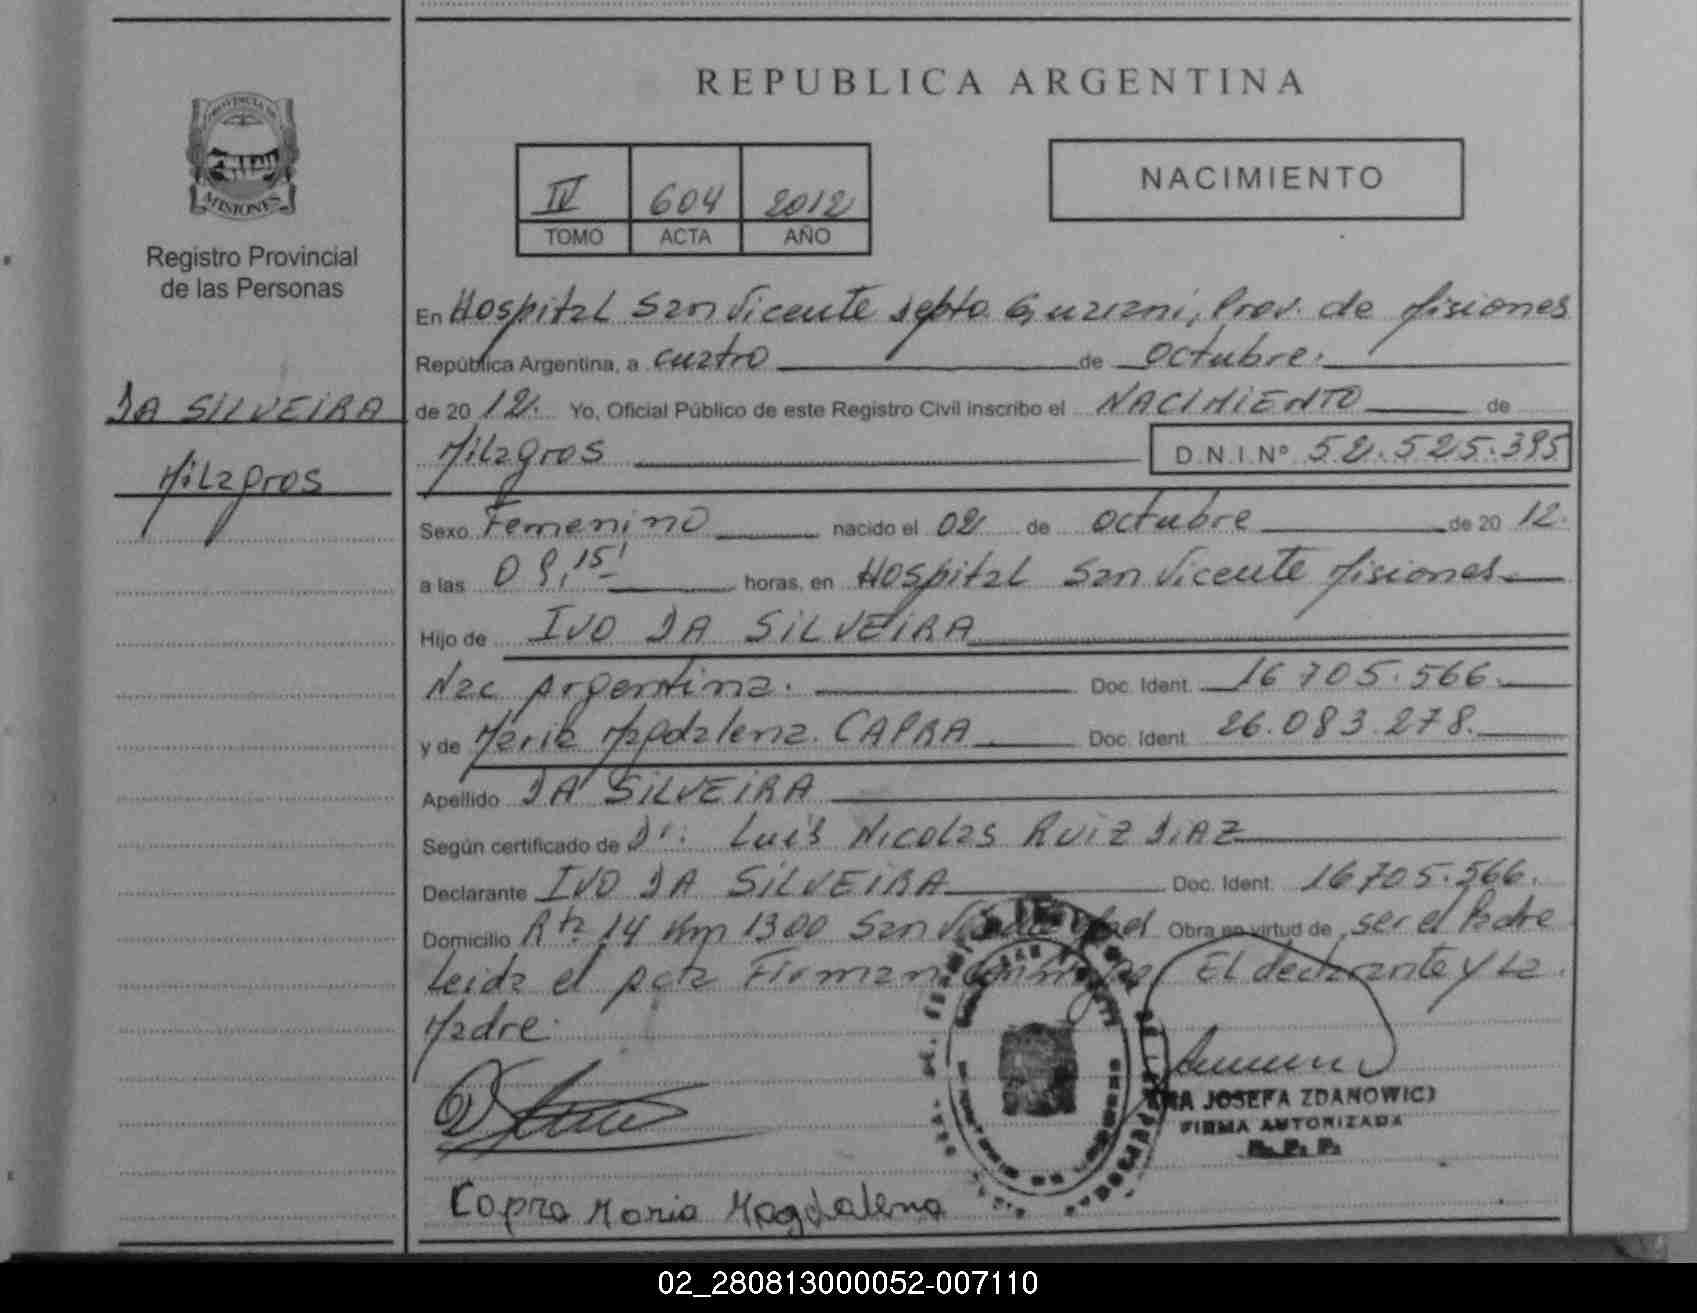 REPUBLICA ARGENTINA
PROVINCIA DE
MISIONES
Registro Provincial
de las Personas
IV 604 2012
TOMO ACTA AÑO
NACIMIENTO
DA SILVEIRA
Milagros
En Hospital San Vicente Depto Guarani, Prov. de Misiones
República Argentina, a cuatro de Octubre.
de 20 12. Yo, Oficial Público de este Registro Civil inscribo el NACIMIENTO de
Milagros D.N.I.Nº 52.525.395
Sexo Femenino nacido el 02 de octubre de 20 12.
a las 09,15' horas, en Hospital San Vicente Misiones
Hijo de IVO DA SILVEIRA
Nac Argentina. Doc. Ident. 16 705.566.
y de Maria Magdalena CAPRA Doc. Ident. 26.083.278.
Apellido DA SILVEIRA
Según certificado de Dr: Luis Nicolas RUIZ DIAZ
Declarante IVO DA SILVEIRA Doc. Ident. 16705.566.
Domicilio Rta 14 Km 1300 San Obra en virtud de ser el Padre
Leida el acta Firman El declarante y La
Madre.
JOSEFA ZDANOWICZ
FIRMA AUTORIZADA
R. P. P.
Capra Maria Magdalena
02_280813000052-007110